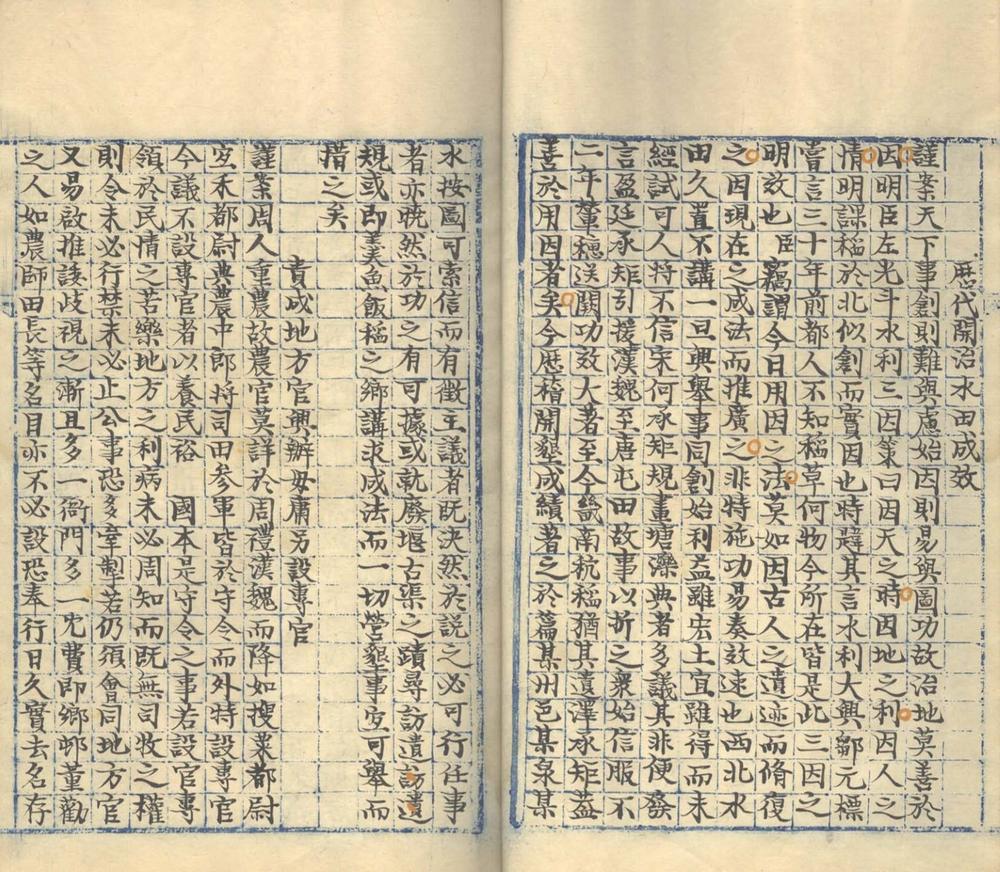 歷代開治水田成效
謹案天下事創則難與慮始因則易與圖功故治地莫善於
因明臣左光斗水利三因策曰因天之時因地之利因人之
情明課稻於北似創而實因也特疑其言水利大興鄒元標
嘗言三十年前都人不知稻草何物今所在皆是此三因之
明效也臣竊謂今日用因之法莫如因古人之遺迹而脩復
之因現在之成法而推廣之非特施功易奏效速也西北水
田久置不講一旦興舉事同創始利益雖宏土宜雖得而未
經試可人特不信宋何承矩規畫塘濼典者多議其非便發
言盈廷承矩引援漢魏至唐屯田故事以折之衆始信服不
二年輦穗送闕功效大著至今畿南秔稻猶其遺澤承矩葢
善於用因者矣今歷稽開墾成績著之於篇某州邑某泉某
水按圖可索信而有徵主議者旣決然於說之必可行任事
者亦曉然於功之有可據或就廢堰古渠之蹟尋訪遺訪遺
規或即羨魚飯稻之鄉講求成法而一切營墾事宜可舉而
措之矣
責成地方官興辦毋庸另設專官
謹案周人重農故農官莫詳於周禮漢魏而降如搜粟都尉
宜禾都尉典農中郎將司田參軍皆於守令而外特設專官
今議不設專官者以養民裕國本是守令之事若設官專
領於民情之苦樂地方之利病未必周知而旣無司牧之權
則令未必行禁未必止公事恐多牽掣若仍須會同地方官
又易啟推諉歧視之漸且多一衙門多一宂費即鄉邨董勸
之人如農師田長等名目亦不必設恐奉行日久實去名存